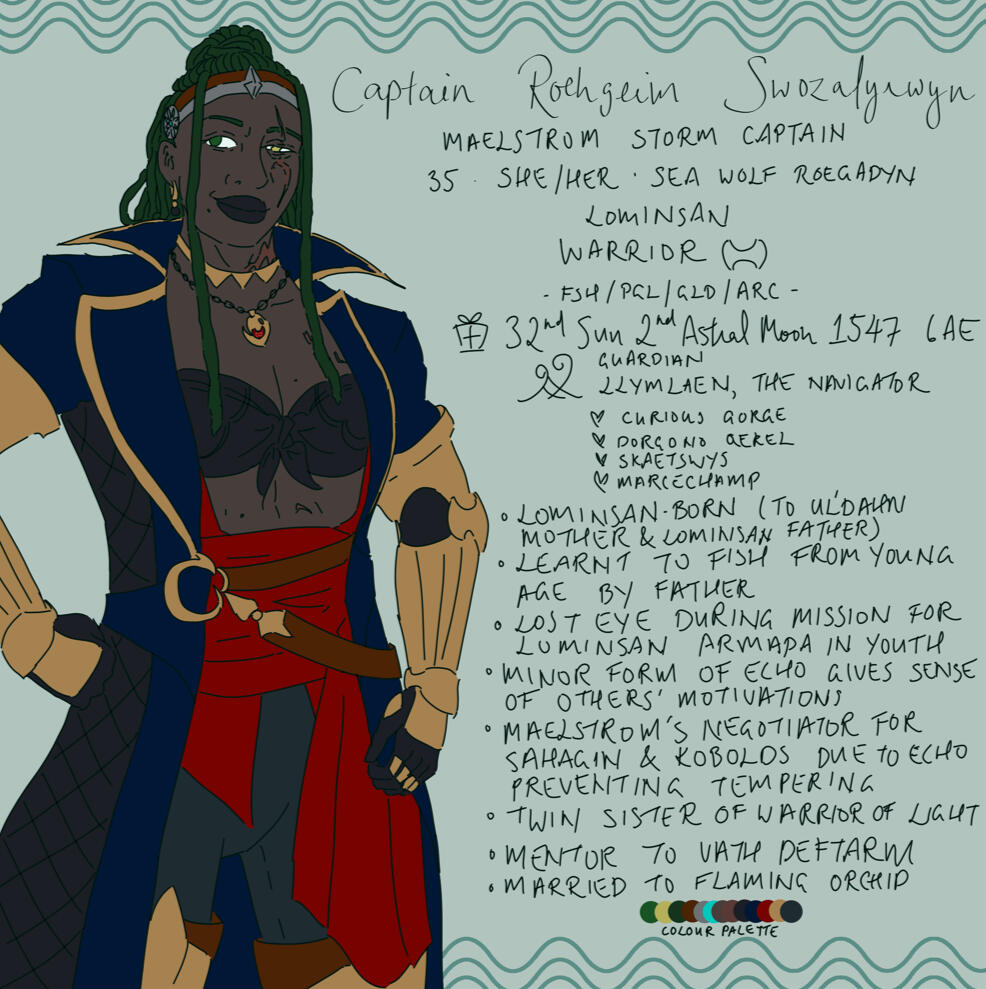 Captain Roehgeim Swozalyrwyn
MAELSTROM STORM CAPTAIN
35 · SHE/HER · SEA WOLF ROEGADYN
LOMINSAN
WARRIOR
- FSH/PGL/GLD/ARC -
32nd Sun 2nd Astral Moon 1547 6AE
GUARDIAN
LLYMLAEN, THE NAVIGATOR
CURIOUS GORGE
DORGONO QEREL
SKAETSWYS
MARCECHAMP
• LOMINSAN-BORN (TO UL'DAHN
MOTHER & LOMINSAN FATHER)
• LEARNT TO FISH FROM YOUNG
AGE BY FATHER
• LOST EYE DURING MISSION FOR
LOMINSAN ARMADA IN YOUTH
• MINOR FORM OF ECHO GIVES SENSE
OF OTHERS' MOTIVATIONS
• MAELSTROM'S NEGOTIATOR FOR
SAHAGIN & KOBOLDS DUE TO ECHO
PREVENTING TEMPERING
• TWIN SISTER OF WARRIOR OF LIGHT
• MENTOR TO VATH DEFTARM
• MARRIED TO FLAMING ORCHID
COLOUR PALETTE